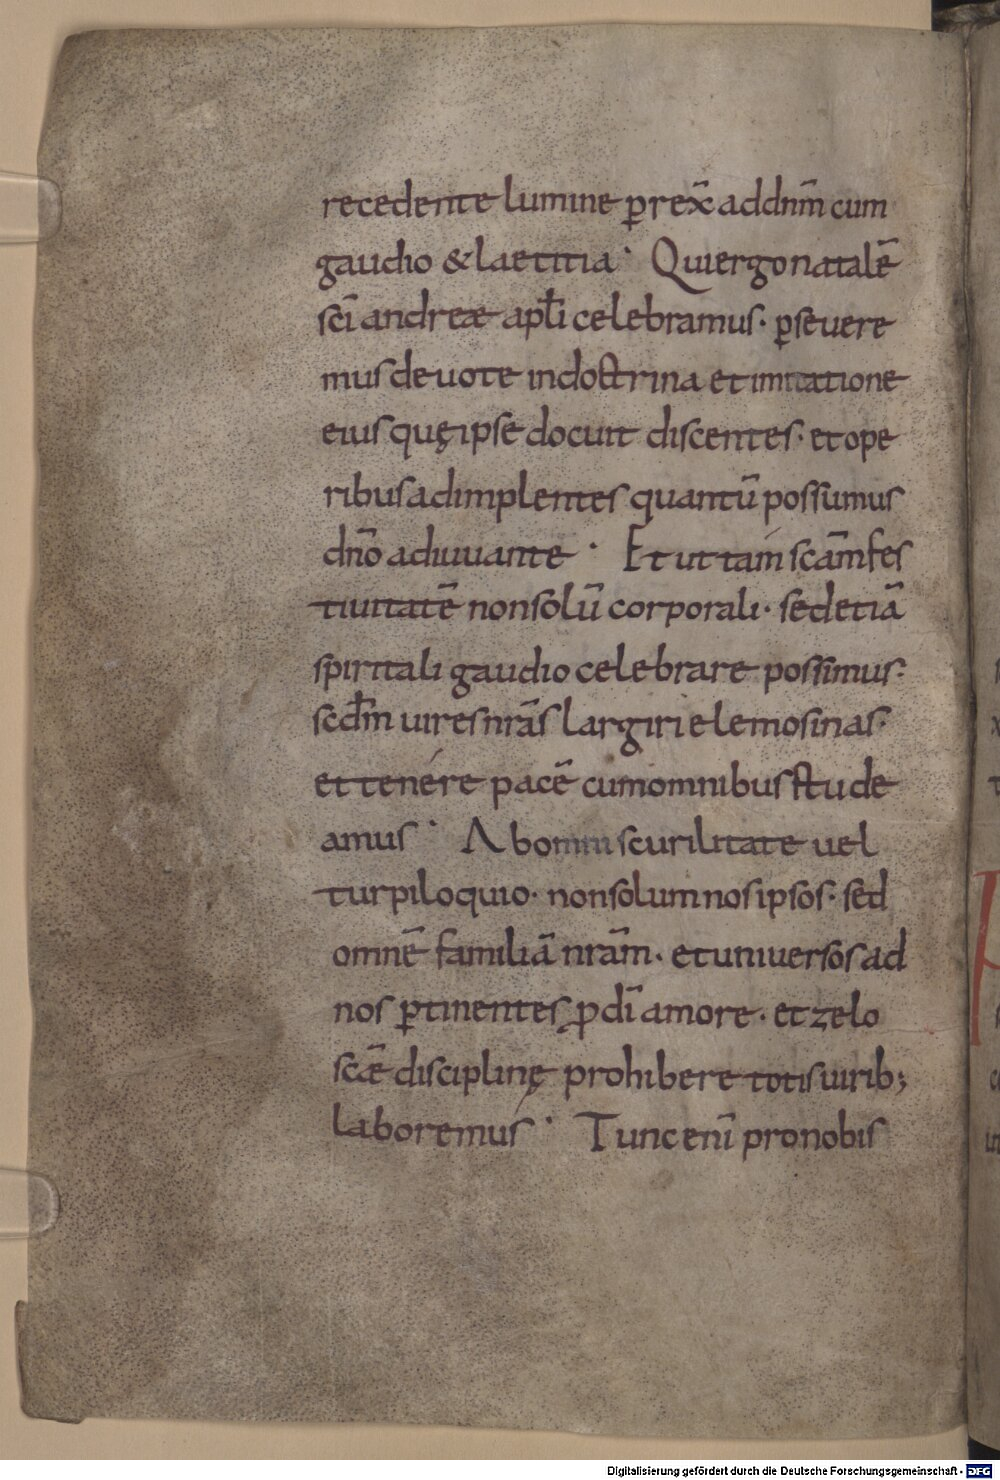 recedente lumine ꝑrex̄ ad dnm̄ cum
gaudio & laetitia · Qui ergo natalē
sc̄i andreæ apłi celebramus · ꝑseuere
mus deuote in doctrina et imitatione
eius quę ipse docuit discentes · et ope
ribus adimplentes quantū possumus
dn̄o adiuuante · Et ut tam sc̄am fes
tiuitatē non solū corporali · sed etiā
spiritali gaudio celebrare possimus ·
scdm̄ uires nr̄as largiri elemosinas ·
et tenére pacē cum omnibus stude
amus · Ab omni scurilitate uel
turpiloquio · non solum nos ipsos · sed
omnē familiā nr̄am · et uniuersos ad
nos ꝑtinentes ꝓ dī amore · et zelo
sc̄æ disciplinę prohibere totis uirib;
laboremus · Tunc enī pro nobis
Digitalisierung gefördert durch die Deutsche Forschungsgemeinschaft - DFG